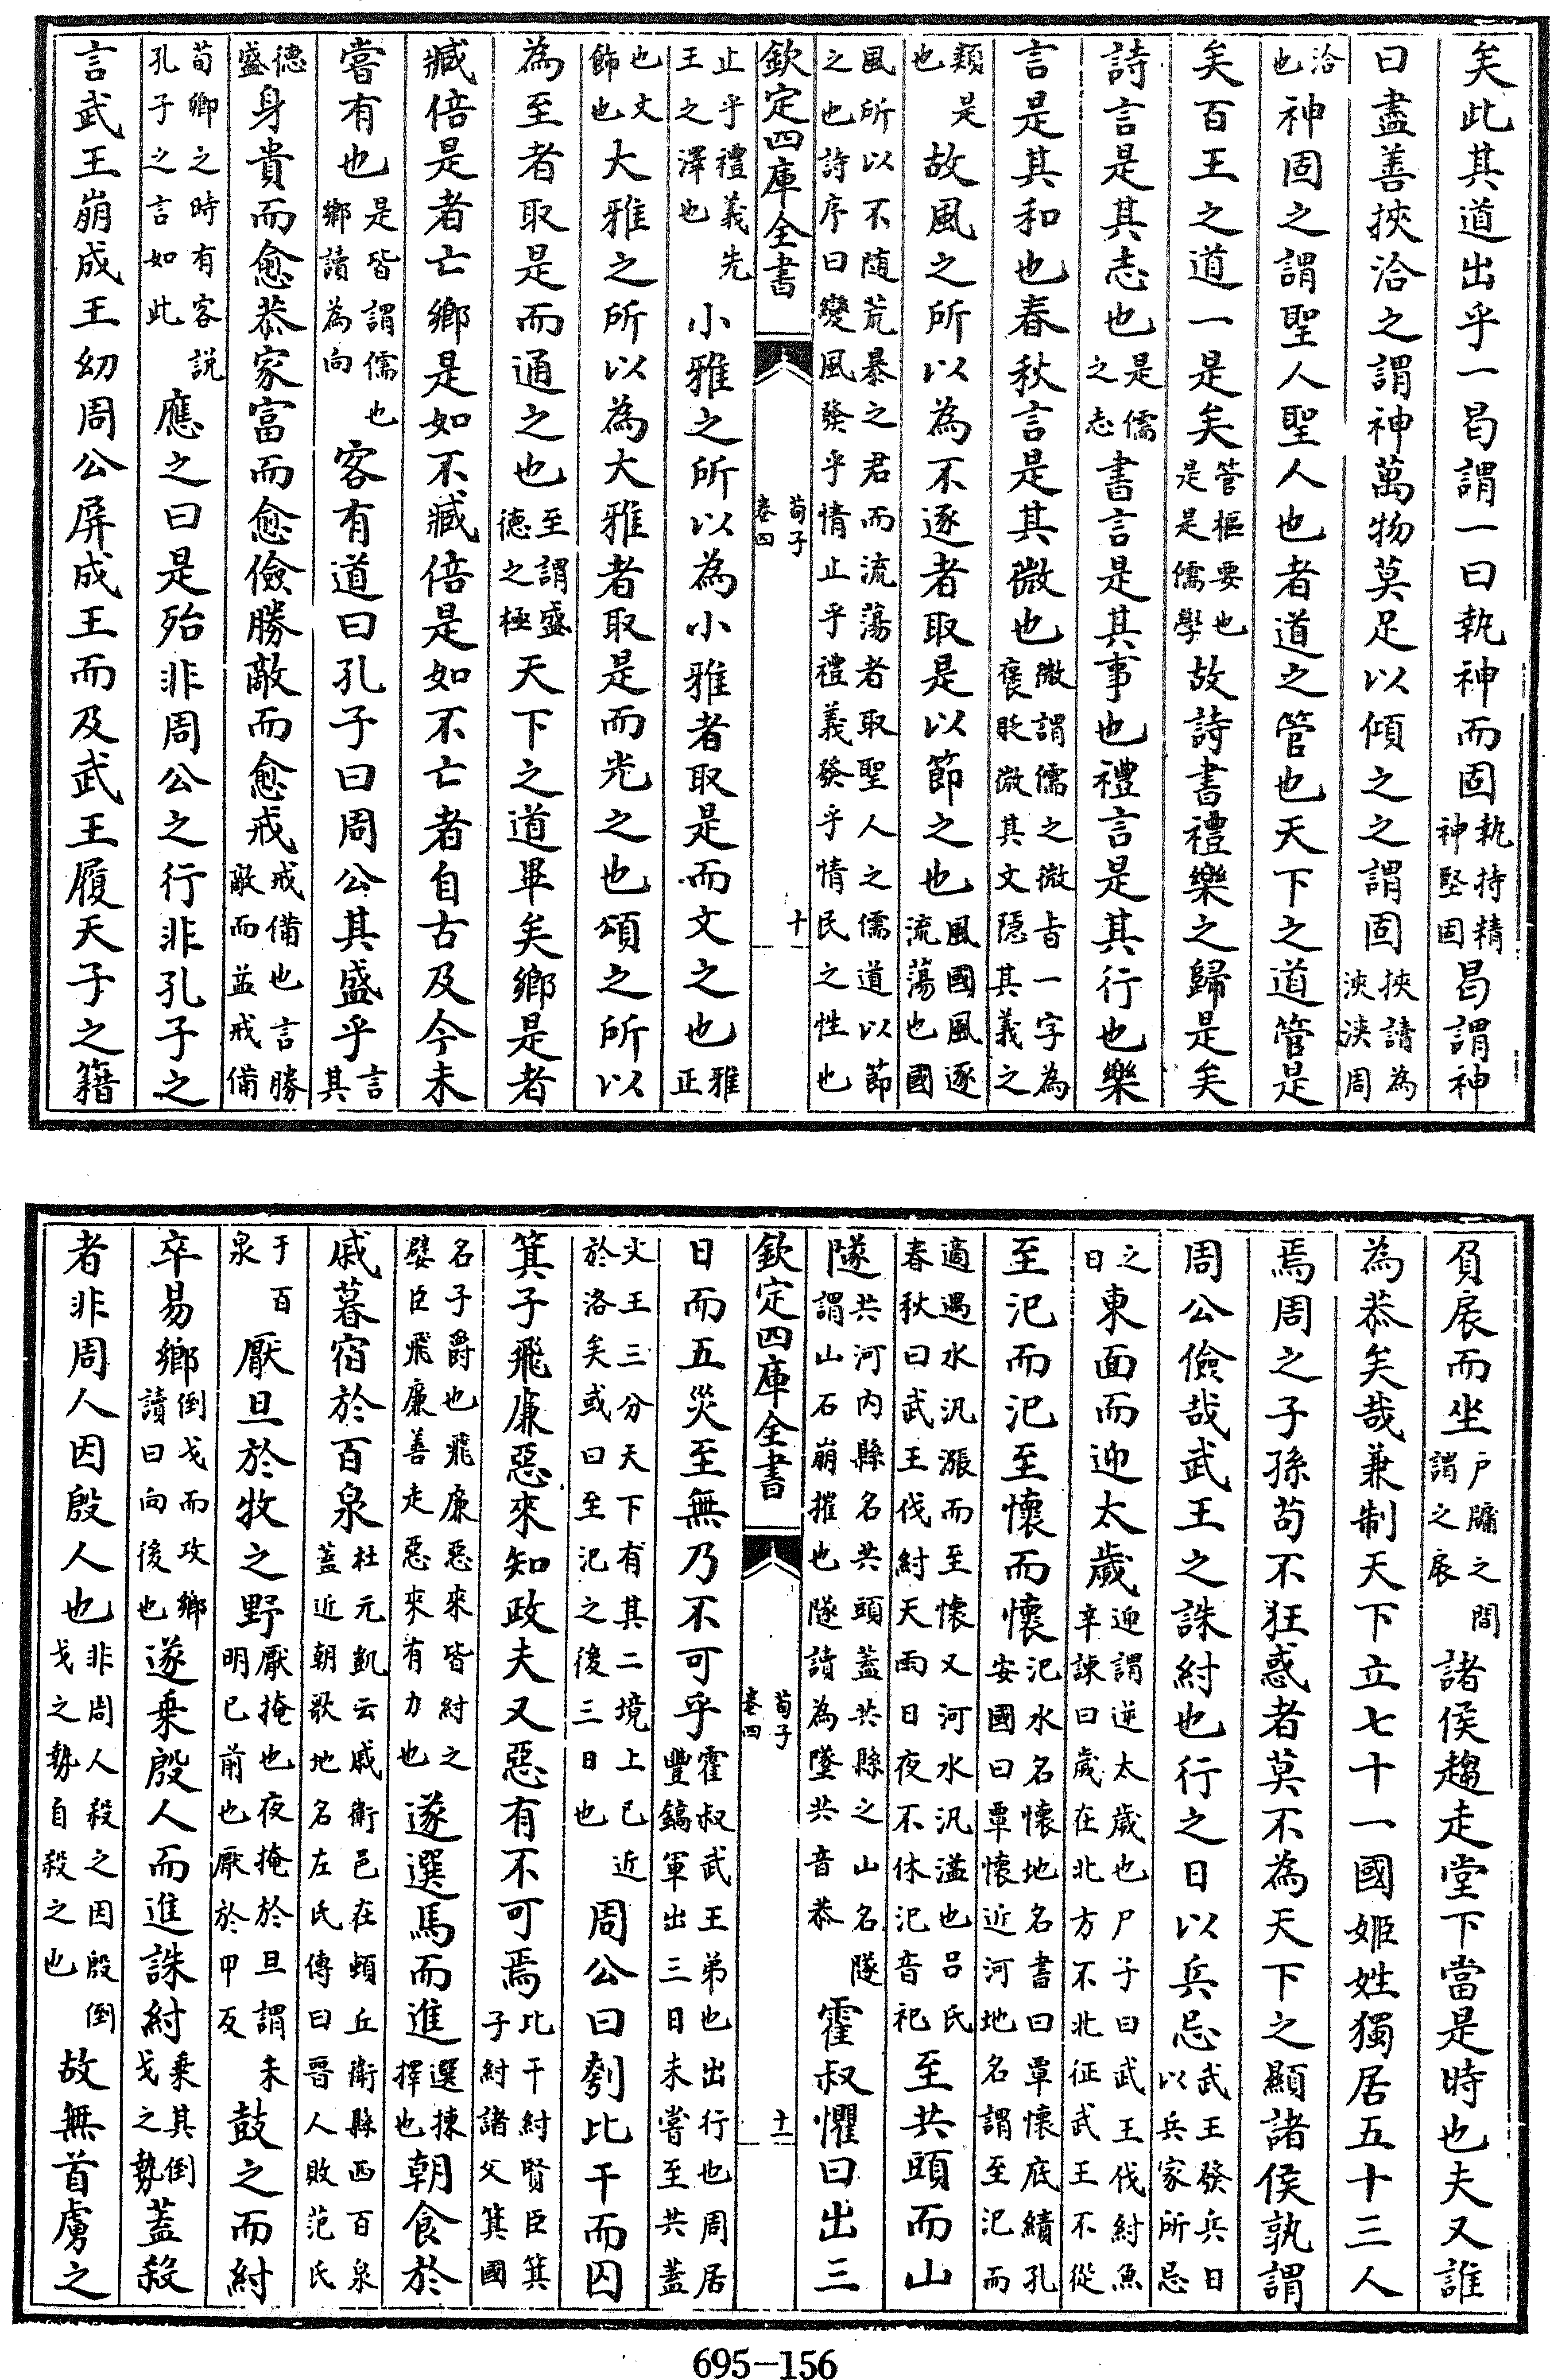 矣此其道出乎一曷謂一曰執神而固執持精神堅固曷謂神
曰盡善挾洽之謂神萬物莫足以傾之之謂固挾請為浹浹周
洽也神固之謂聖人聖人也者道之管也天下之道管是
矣百王之道一是矣管樞要也是是儒學故詩書禮樂之歸是矣
詩言是其志也是儒之志書言是其事也禮言是其行也樂
言是其和也春秋言是其微也微謂儒之微㫖一字為褒貶微其文隱其義之
類是也故風之所以為不逐者取是以節之也風國風逐流蕩也國
風所以不随荒暴之君而流蕩者取聖人之儒道以節之也詩序曰變風發乎情止乎禮義發乎情民之性也
欽定四庫全書 荀子 卷四 十
止乎禮義先王之澤也小雅之所以為小雅者取是而文之也雅正
也文飾也大雅之所以為大雅者取是而光之也頌之所以
為至者取是而通之也至謂盛德之極天下之道畢矣鄉是者
臧倍是者亡鄉是如不臧倍是如不亡者自古及今未
嘗有也是皆謂儒也鄉讀為向客有道曰孔子曰周公其盛乎言其
德盛身貴而愈恭家富而愈儉勝敵而愈戒戒備也言勝敵而益戒備
荀卿之時有客説孔子之言如此應之曰是殆非周公之行非孔子之
言武王崩成王幼周公屏成王而及武王履天子之籍
負扆而坐户牖之間謂之扆諸侯趨走堂下當是時也夫又誰
為恭矣哉兼制天下立七十一國姬姓獨居五十三人
焉周之子孫苟不狂惑者莫不為天下之顯諸侯孰謂
周公儉哉武王之誅紂也行之日以兵忌武王發兵日以兵家所忌
之日東面而迎太歲迎謂逆太歲也尸子曰武王伐紂魚辛諫曰歲在北方不北征武王不從
至汜而汜至懷而懷汜水名懷地名書曰覃懷底績孔安國曰覃懷近河地名謂至汜而
適遇水汎漲而至懷又河水汎溢也吕氏春秋曰武王伐紂天雨日夜不休汜音祀至共頭而山
隧共河内縣名共頭蓋共縣之山名隧謂山石崩摧也隧讀為墜共音恭霍叔懼曰出三
欽定四庫全書 荀子 卷四 十一
日而五災至無乃不可乎霍叔武王弟也出行也周居豐鎬軍出三日未嘗至共蓋
文王三分天下有其二境上已近於洛矣或曰至汜之後三日也周公曰刳比干而囚
箕子飛廉惡來知政夫又惡有不可焉比干紂賢臣箕子紂諸父箕國
名子爵也飛廉惡來皆紂之嬖臣飛廉善走惡來有力也遂選馬而進選揀擇也朝食於
戚暮宿於百泉杜元凱云戚衛邑在頓丘衛縣西百泉蓋近朝歌地名左氏傳曰晉人敗范氏
于百泉厭旦於牧之野厭掩也夜掩於旦謂未明已前也厭於甲反鼓之而紂
卒易鄉倒戈而攻鄉讀曰向後也遂乗殷人而進誅紂乗其倒戈之勢蓋殺
者非周人因殷人也非周人殺之因殷倒戈之勢自殺之也故無首虜之
695-156